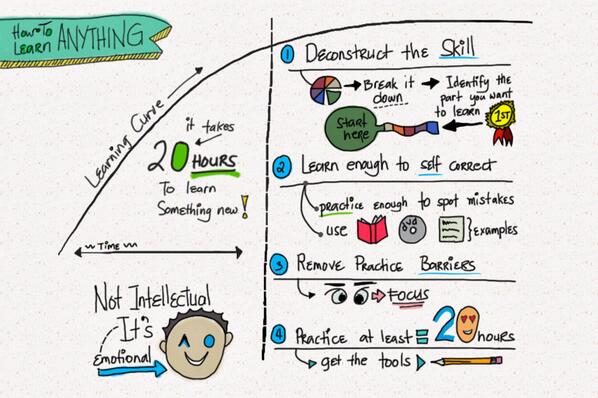 How To
Learn ANYTHING
Learning Curve
it takes
20 HOURS
To learn
Something new!
Time
Not Intellectual
It's
Emotional
1 Deconstruct the Skill
Break it
down
Identify the
part you want
to learn
Start
here
1ST
2 Learn enough to self correct
practice enough to spot mistakes
use
Examples
3 Remove Practice Barriers
Focus
4 Practice at least 20 hours
get the tools